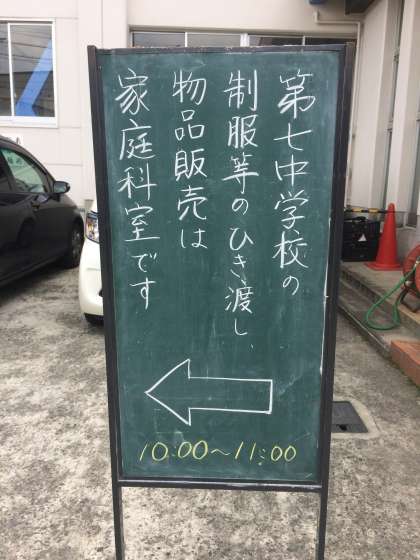 第七中学校の
制服等のひき渡し、
物品販売は
家庭科室です
10:00〜11:00